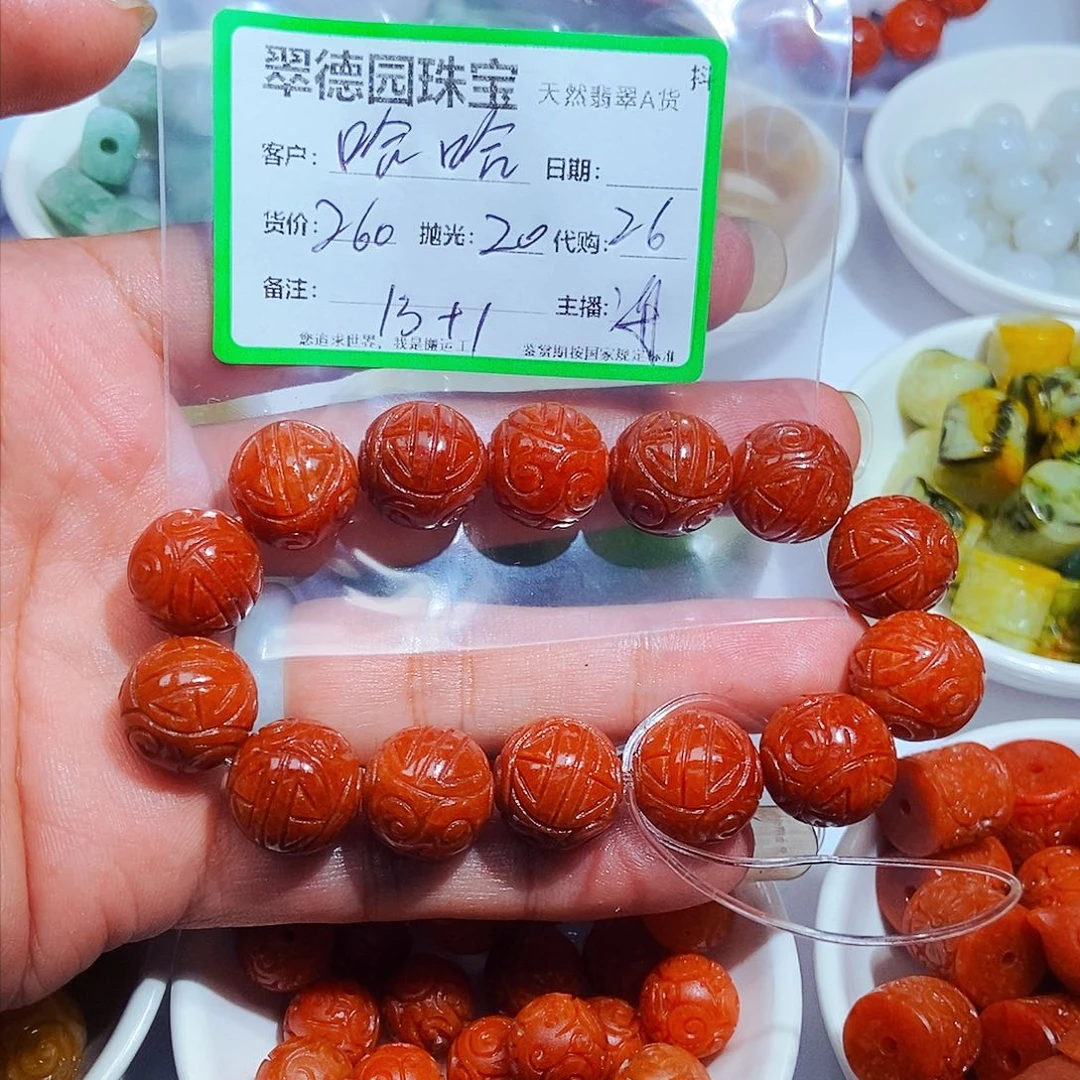 翠德园珠宝 天然翡翠A货 抖
客户: 哈哈 日期:
货价: 260 抛光: 20 代购: 26
备注: 13+1 主播:
您追求世界，我是搬运工 鉴赏期按国家规定标准